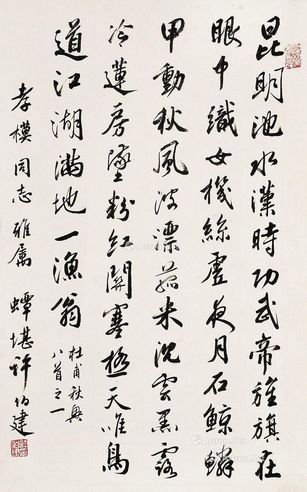 昆明池水漢時功武帝旌旗在
眼中織女機絲虛夜月石鯨鱗
甲動秋風波漂菰米沈雲黑露
冷蓮房墜粉紅關塞極天唯鳥
道江湖滿地一漁翁
杜甫秋興
八首之一
孝模同志雅屬 蟫堪許伯建